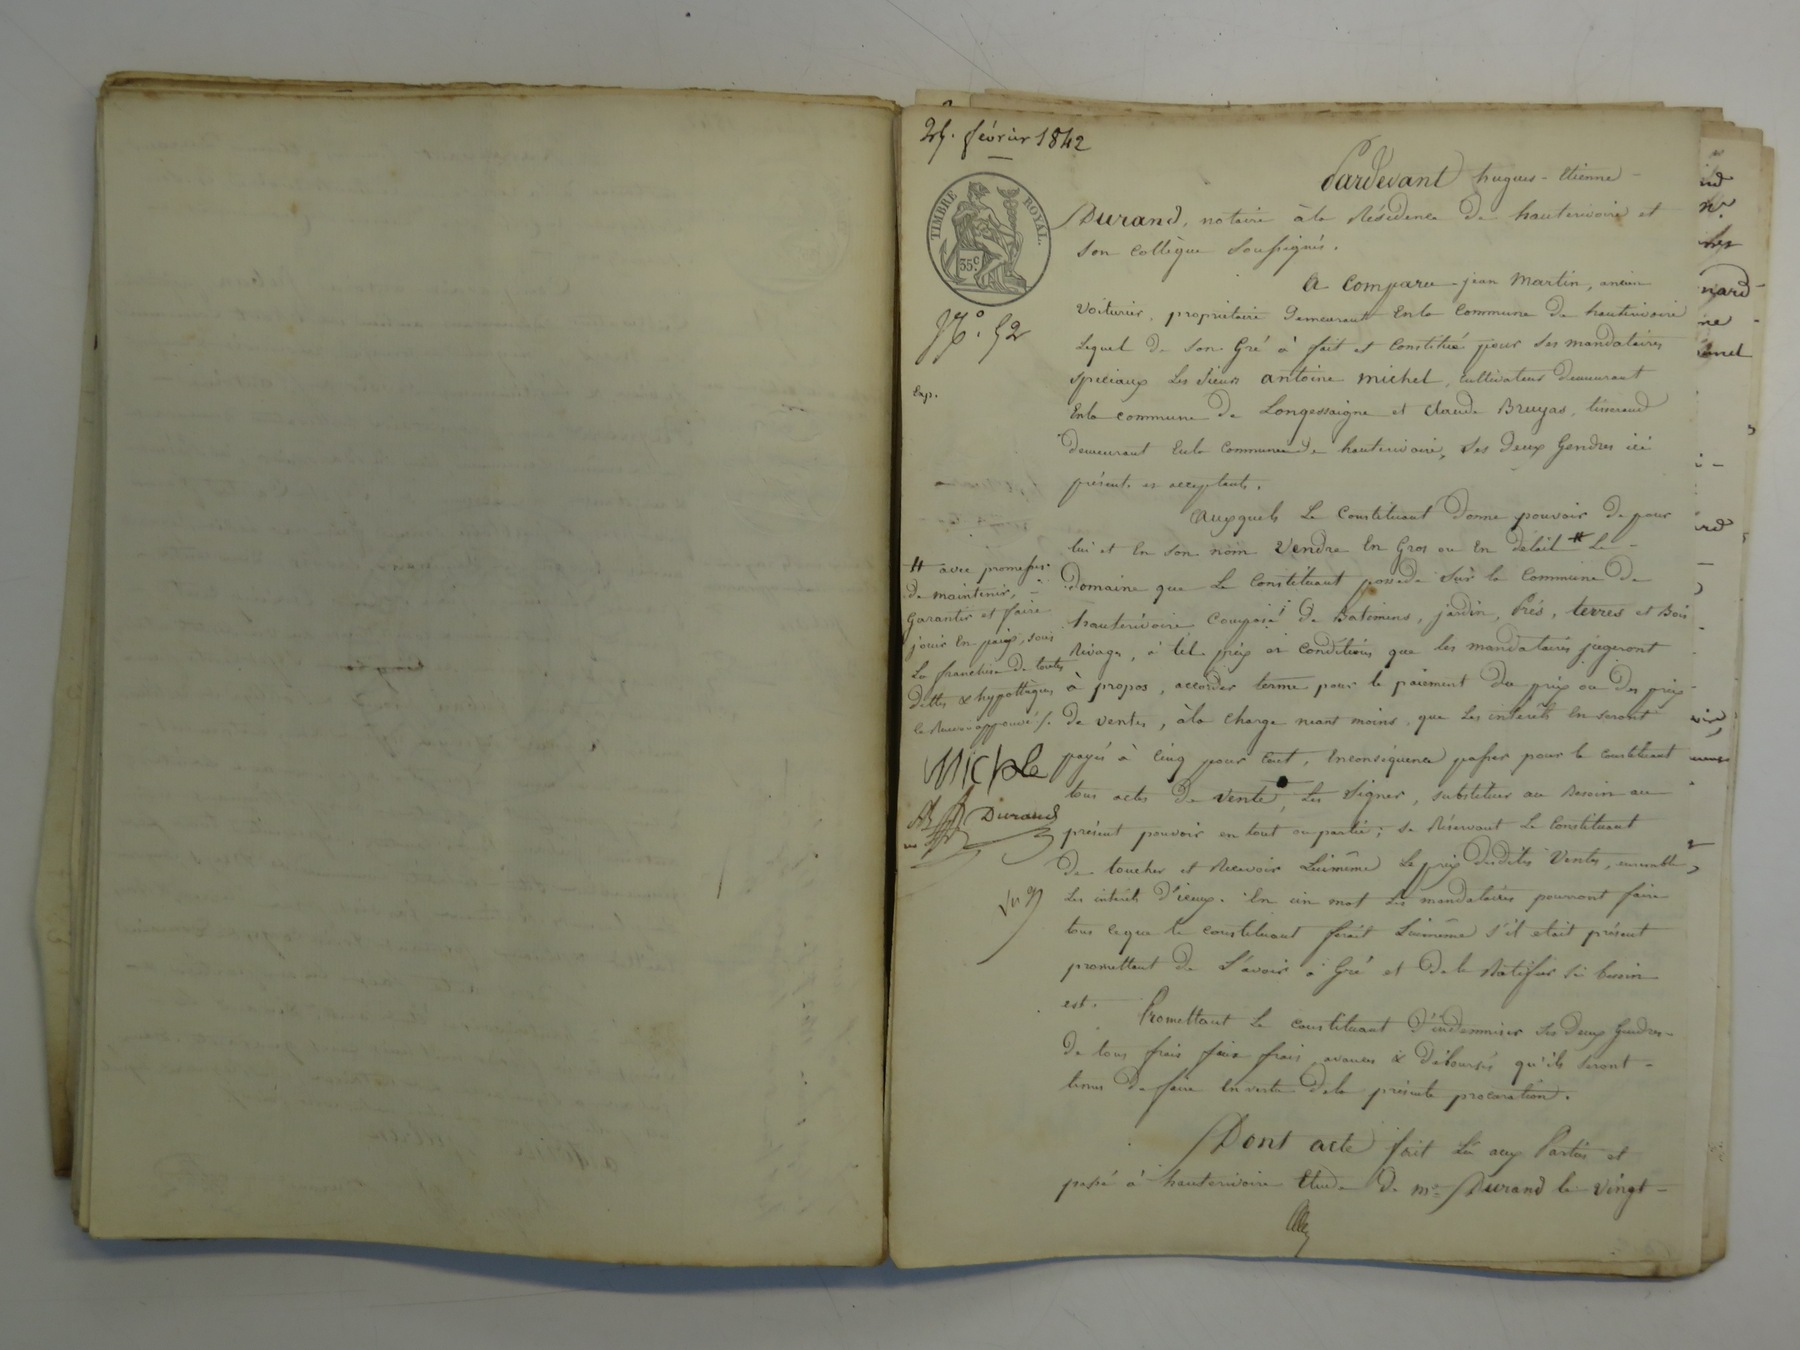 25. février 1842
TIMBRE ROYAL.
35 c.
N.° 52
Exp.
Pardevant hugues-Etienne-
Durand, notaire à la Résidence de hauterivoire et
son collègue Soussignés.
A Comparu jean Martin, ancien
Voiturier, propriétaire Demeurant Enla Commune de hauterivoire
Lequel de Son Gré à fait et Constitué pour Ses mandataires
spéciaux Les Sieurs antoine michel, Cultivateur demeurant
Enla commune De Longessaigne et Claude Bruyas, tisserand
demeurant Enla Commune de hauterivoire, Ses deux Gendres ici
présents et acceptants.
Auxquels Le Constituant Donne pouvoir de pour
lui et En Son nom Vendre En Gros ou En détail # Le-
Domaine que Le Constituant possede Sur la Commune De
hauterivoire Composé De Batimens, jardin, Prés, terres et Bois
Rivage, à tel prix et Conditions que les mandataires jugeront
à propos, accorder terme pour le paiement du prix ou Des prix-
de ventes, à la charge neant moins, que Les intérêts En Seront
payés à Cinq pour Cent, Enconséquence passer pour le Constituant
tous actes De Vente, Les Signer, substituer au Besoin au
présent pouvoir en tout ou partie; Se Réservant Le Constituant
De toucher et Recevoir Luimême Le prix desdites Ventes, ensemble
Les intérêts D'iceux. En un mot Les mandataires pourront faire
tous ceque le Constituant ferait Luimême s'il etait présent
promettant De L'avoir à Gré et De le Ratifier Si besoin
est. Promettant Le Constituant D'indemniser Ses Deux Gendres-
De tous frais faux frais, avances & Déboursés qu'ils Seront-
tenus De faire En vertu Dela présente procuration.
Dont acte fait Lu aux Parties et
passé à hauterivoire Etude De me. Durand le Vingt-
# avec promesse
De maintenir,-
Garantir et faire
jouir En paix, sous
La franchise De toutes
Dettes & hypothèques
le Renvoi approuvé /.
Michle
Durand